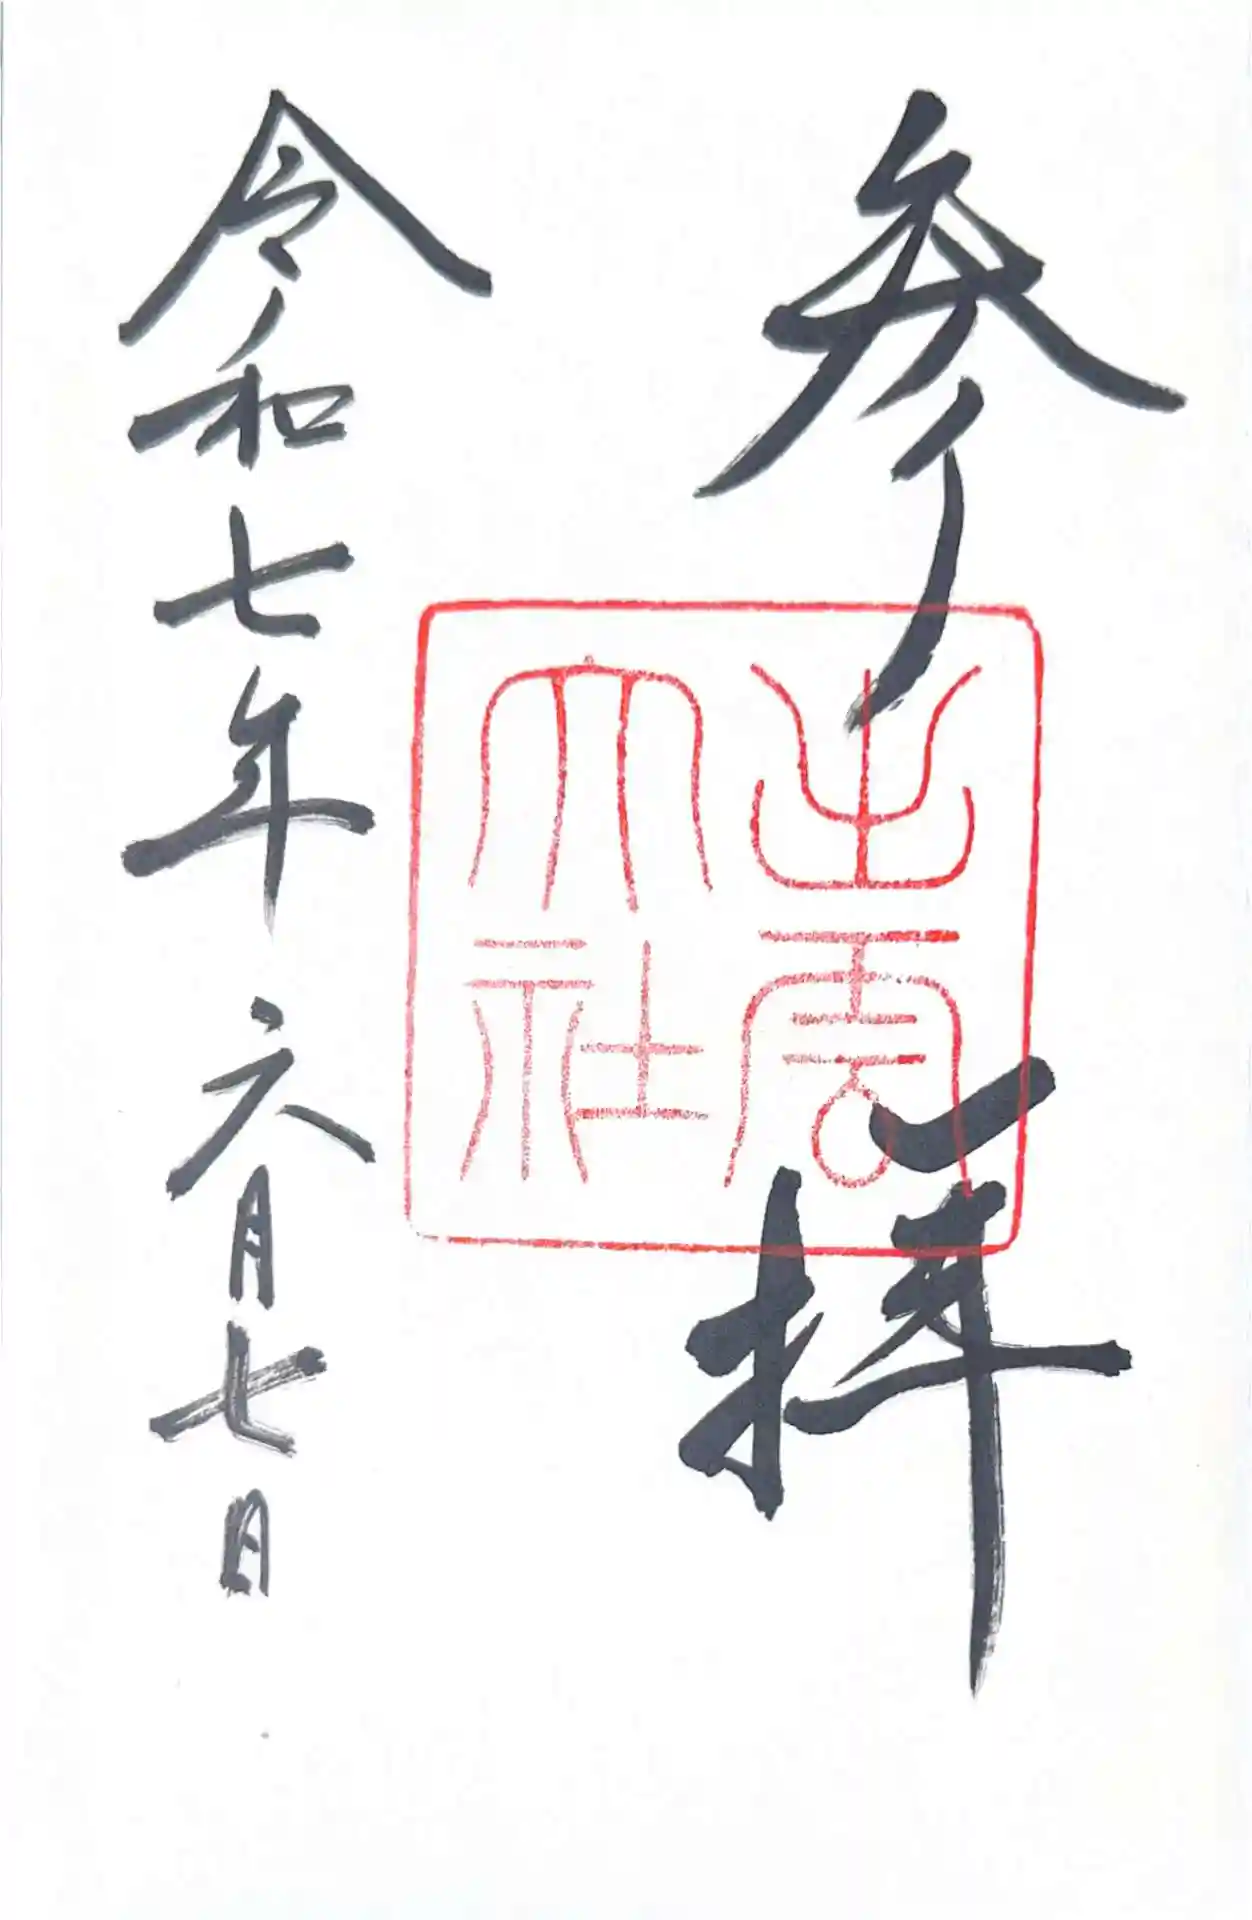 参拝
出雲
大社
令和七年六月七日